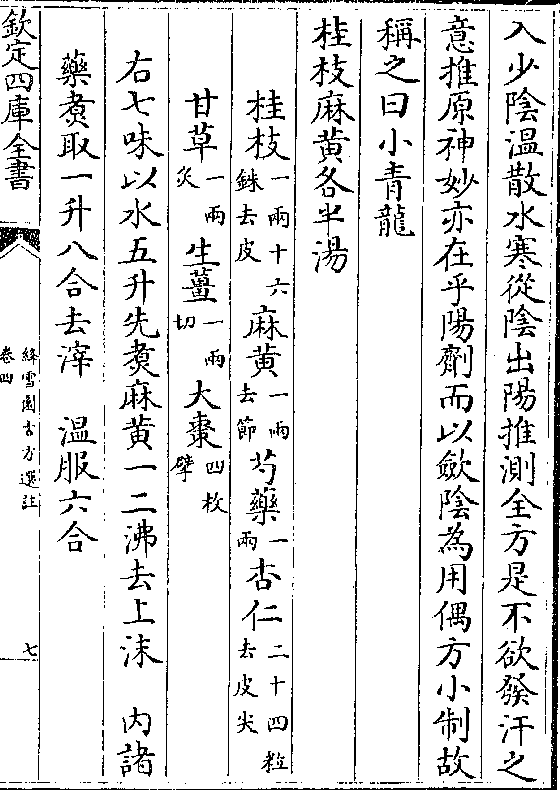 入少陰温散水寒從陰出陽推測全方是不欲發汗之
意推原神妙亦在乎陽劑而以斂陰為用偶方小制故
稱之曰小青龍
桂枝麻黄各半湯
桂枝一兩十六銖去皮 麻黄一兩去節 芍藥一兩 杏仁二十四粒去皮尖
甘草一兩炙 生薑一兩切 大棗四枚擘
右七味以水五升先煑麻黄一二沸去上沫 内諸
藥煑取一升八合去滓 温服六合
欽定四庫全書
絳雪園古方選註
卷四
七